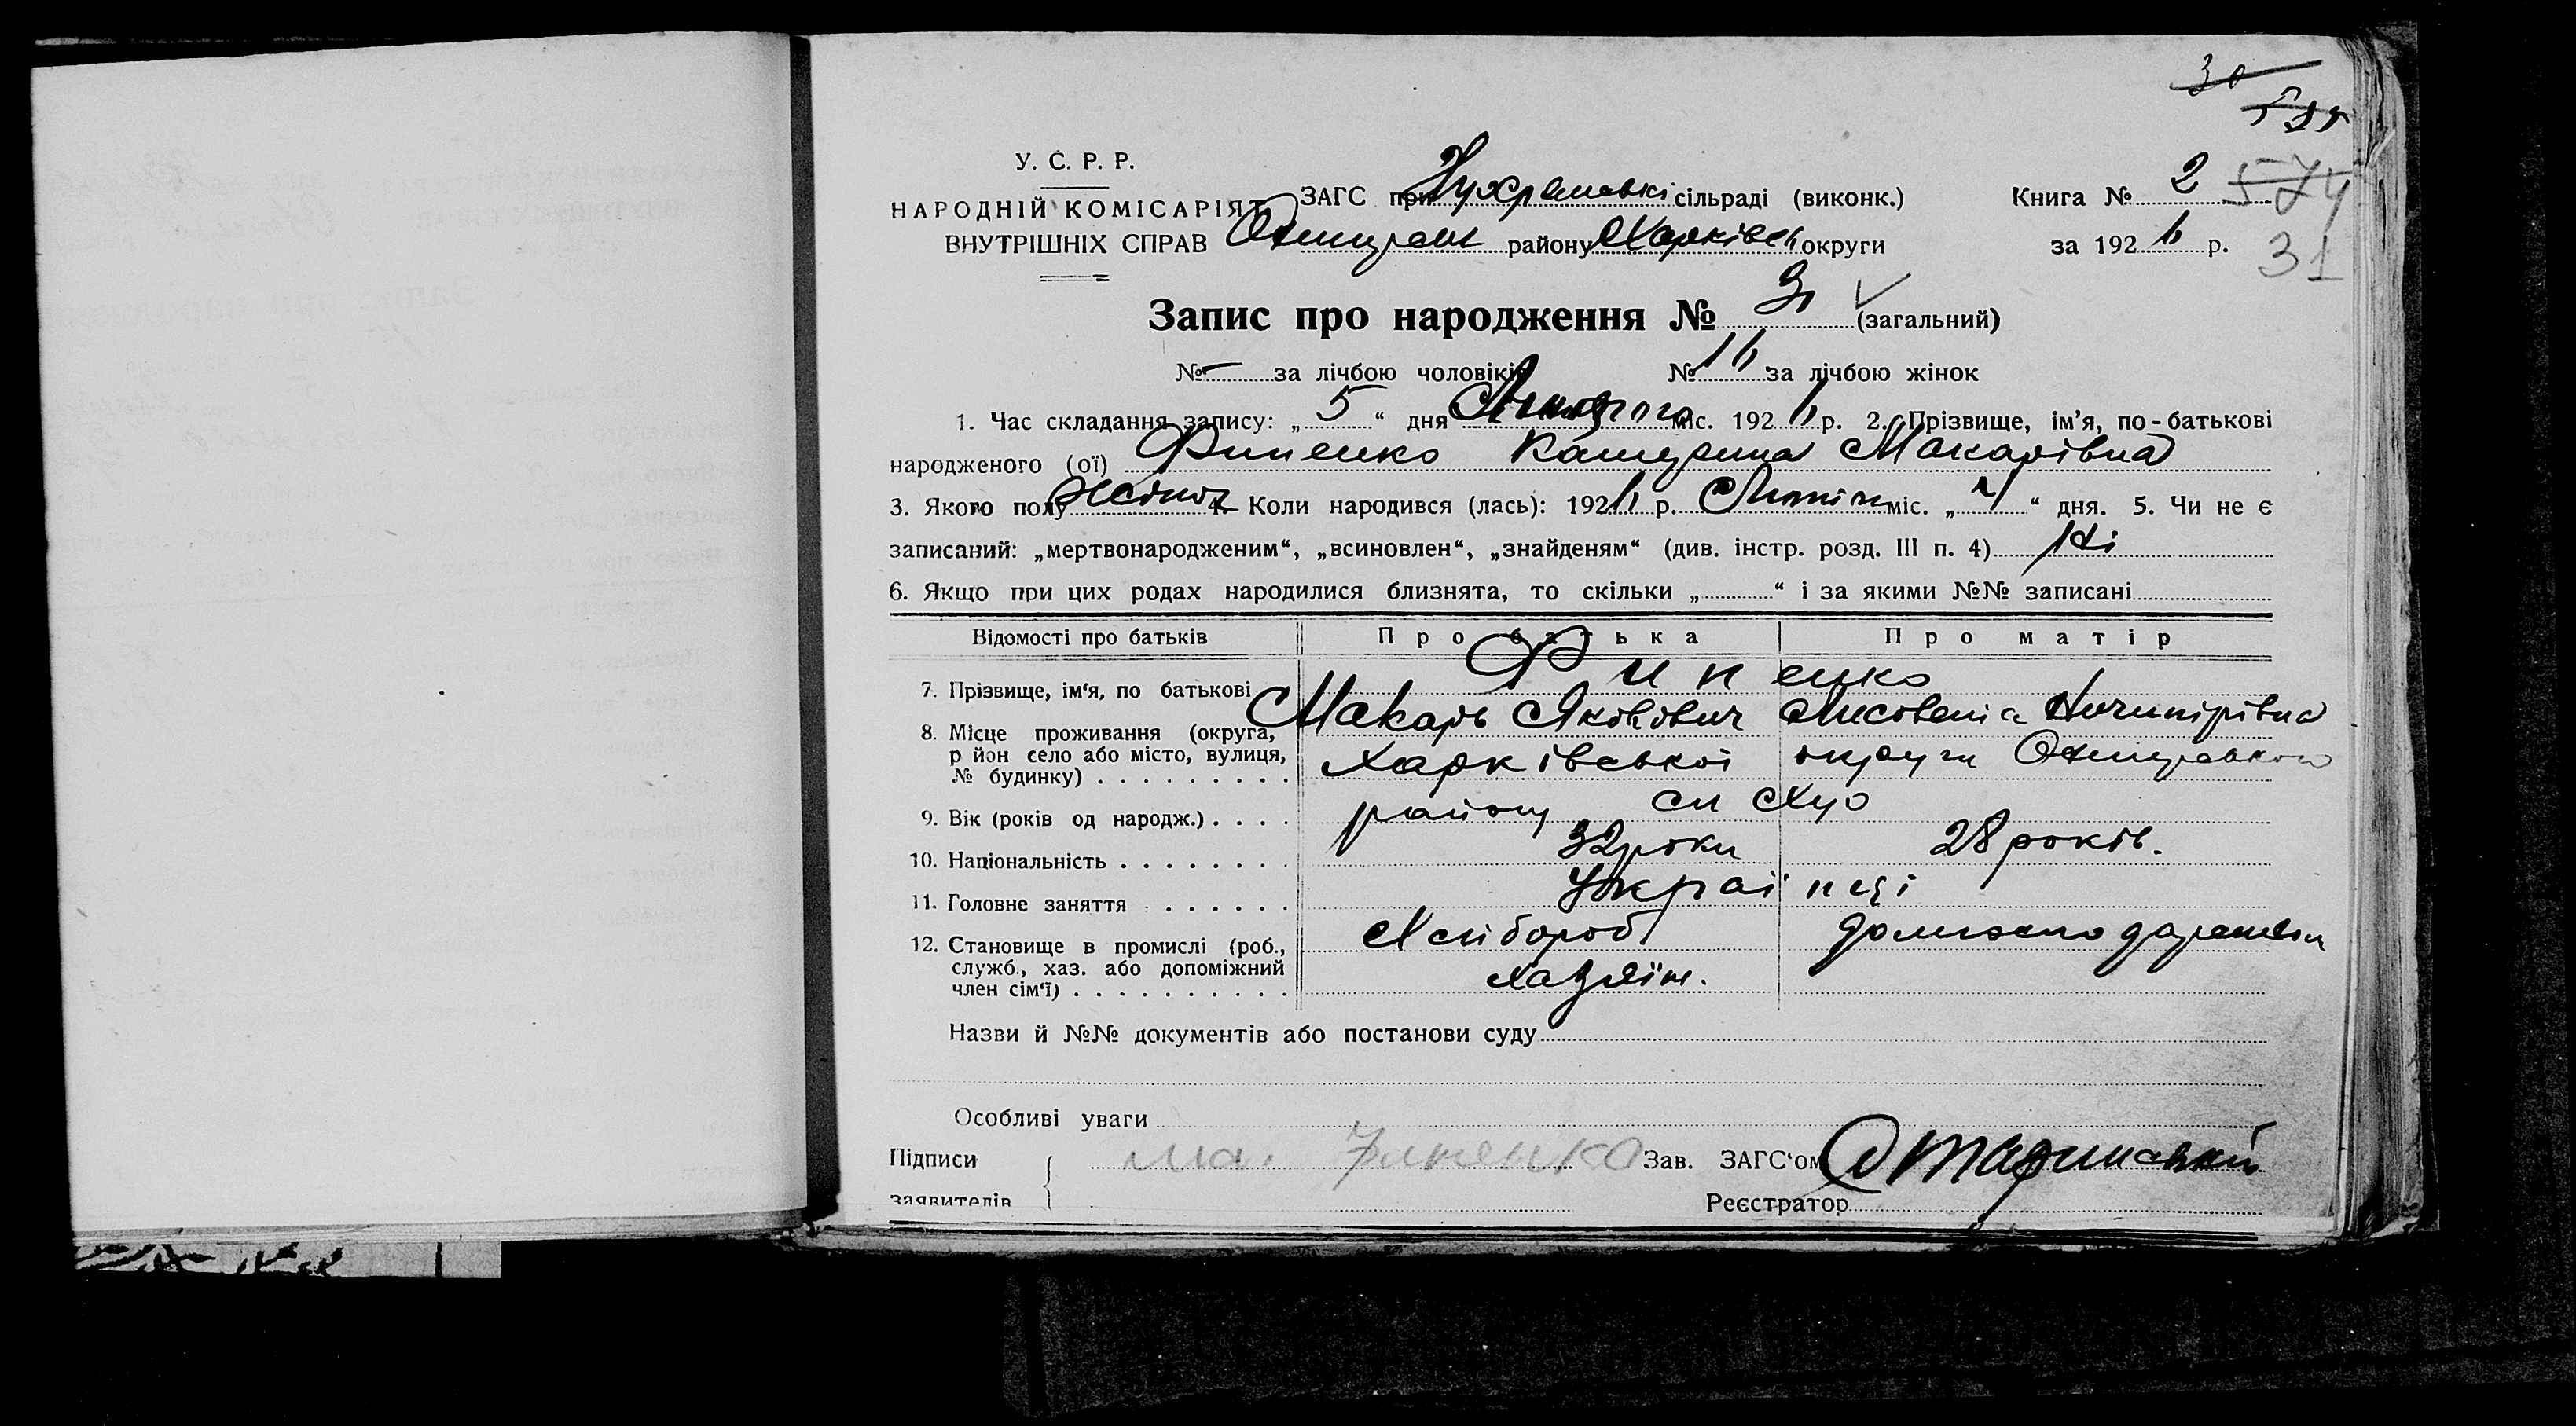 30
31
У. С. Р. Р.
НАРОДНІЙ КОМІСАРІЯТ
ВНУТРІШНІХ СПРАВ
ЗАГС при сільраді (виконк.)
району Харківсь округи
Книга № 2
574
за 192 6 р.
31
Запис про народження № 31 (загальний)
№ — за лічбою чоловіків № 16 за лічбою жінок
1. Час складання запису: „ 5 “ дня Лютого міс. 192 6 р. 2. Прізвище, ім’я, по-батькові
народженого (ої) Фипенко Катерина Макарівна
3. Якого полу жіноч 4. Коли народився (лась): 192 6 р. міс. „ 4 “ дня. 5. Чи не є
записаний: „мертвонародженим“, „всиновлен“, „знайденям“ (див. інстр. розд. III п. 4) Ні
6. Якщо при цих родах народилися близнята, то скільки „ “ і за якими №№ записані
Відомості про батьків Про батька Про матір
7. Прізвище, ім‘я, по батькові Фипенко
Макарь Яковович Ничипірівна
8. Місце проживання (округа,
р йон село або місто, вулиця,
№ будинку)
Харківської округи
району
9. Вік (років од народж.) 32 роки 28 років.
10. Національність Українці
11. Головне заняття Хлібороб
12. Становище в промислі (роб.,
служб., хаз. або допоміжний
член сім‘ї)
хазяїн.
Назви й №№ документів або постанови суду
Особливі уваги
Підписи
заявителів
Зав. ЗАГС‘ом
Реєстратор